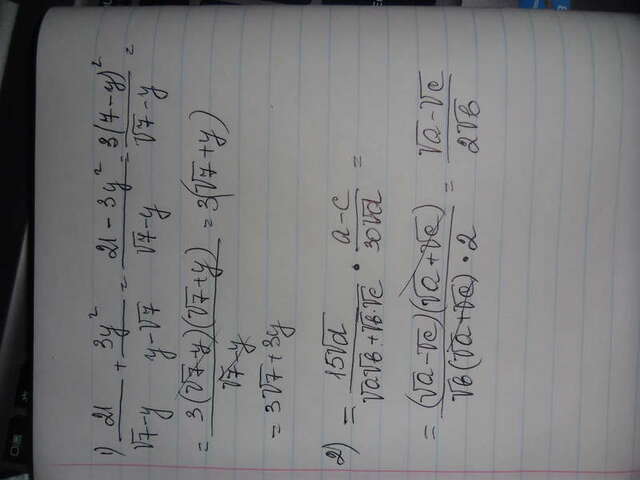 1) 21/(√7-y) + 3y²/(y-√7) = (21-3y²)/(√7-y) = 3(7-y)²/(√7-y) =
= 3(√7-y)(√7+y)/(√7-y) = 3(√7+y)
= 3√7+3y
2) = 15√d/(√a√b+√b·√c) · (a-c)/(30√d) =
= (√a-√c)(√a+√c)/(√b(√a+√c)·2) = (√a-√c)/(2√b)